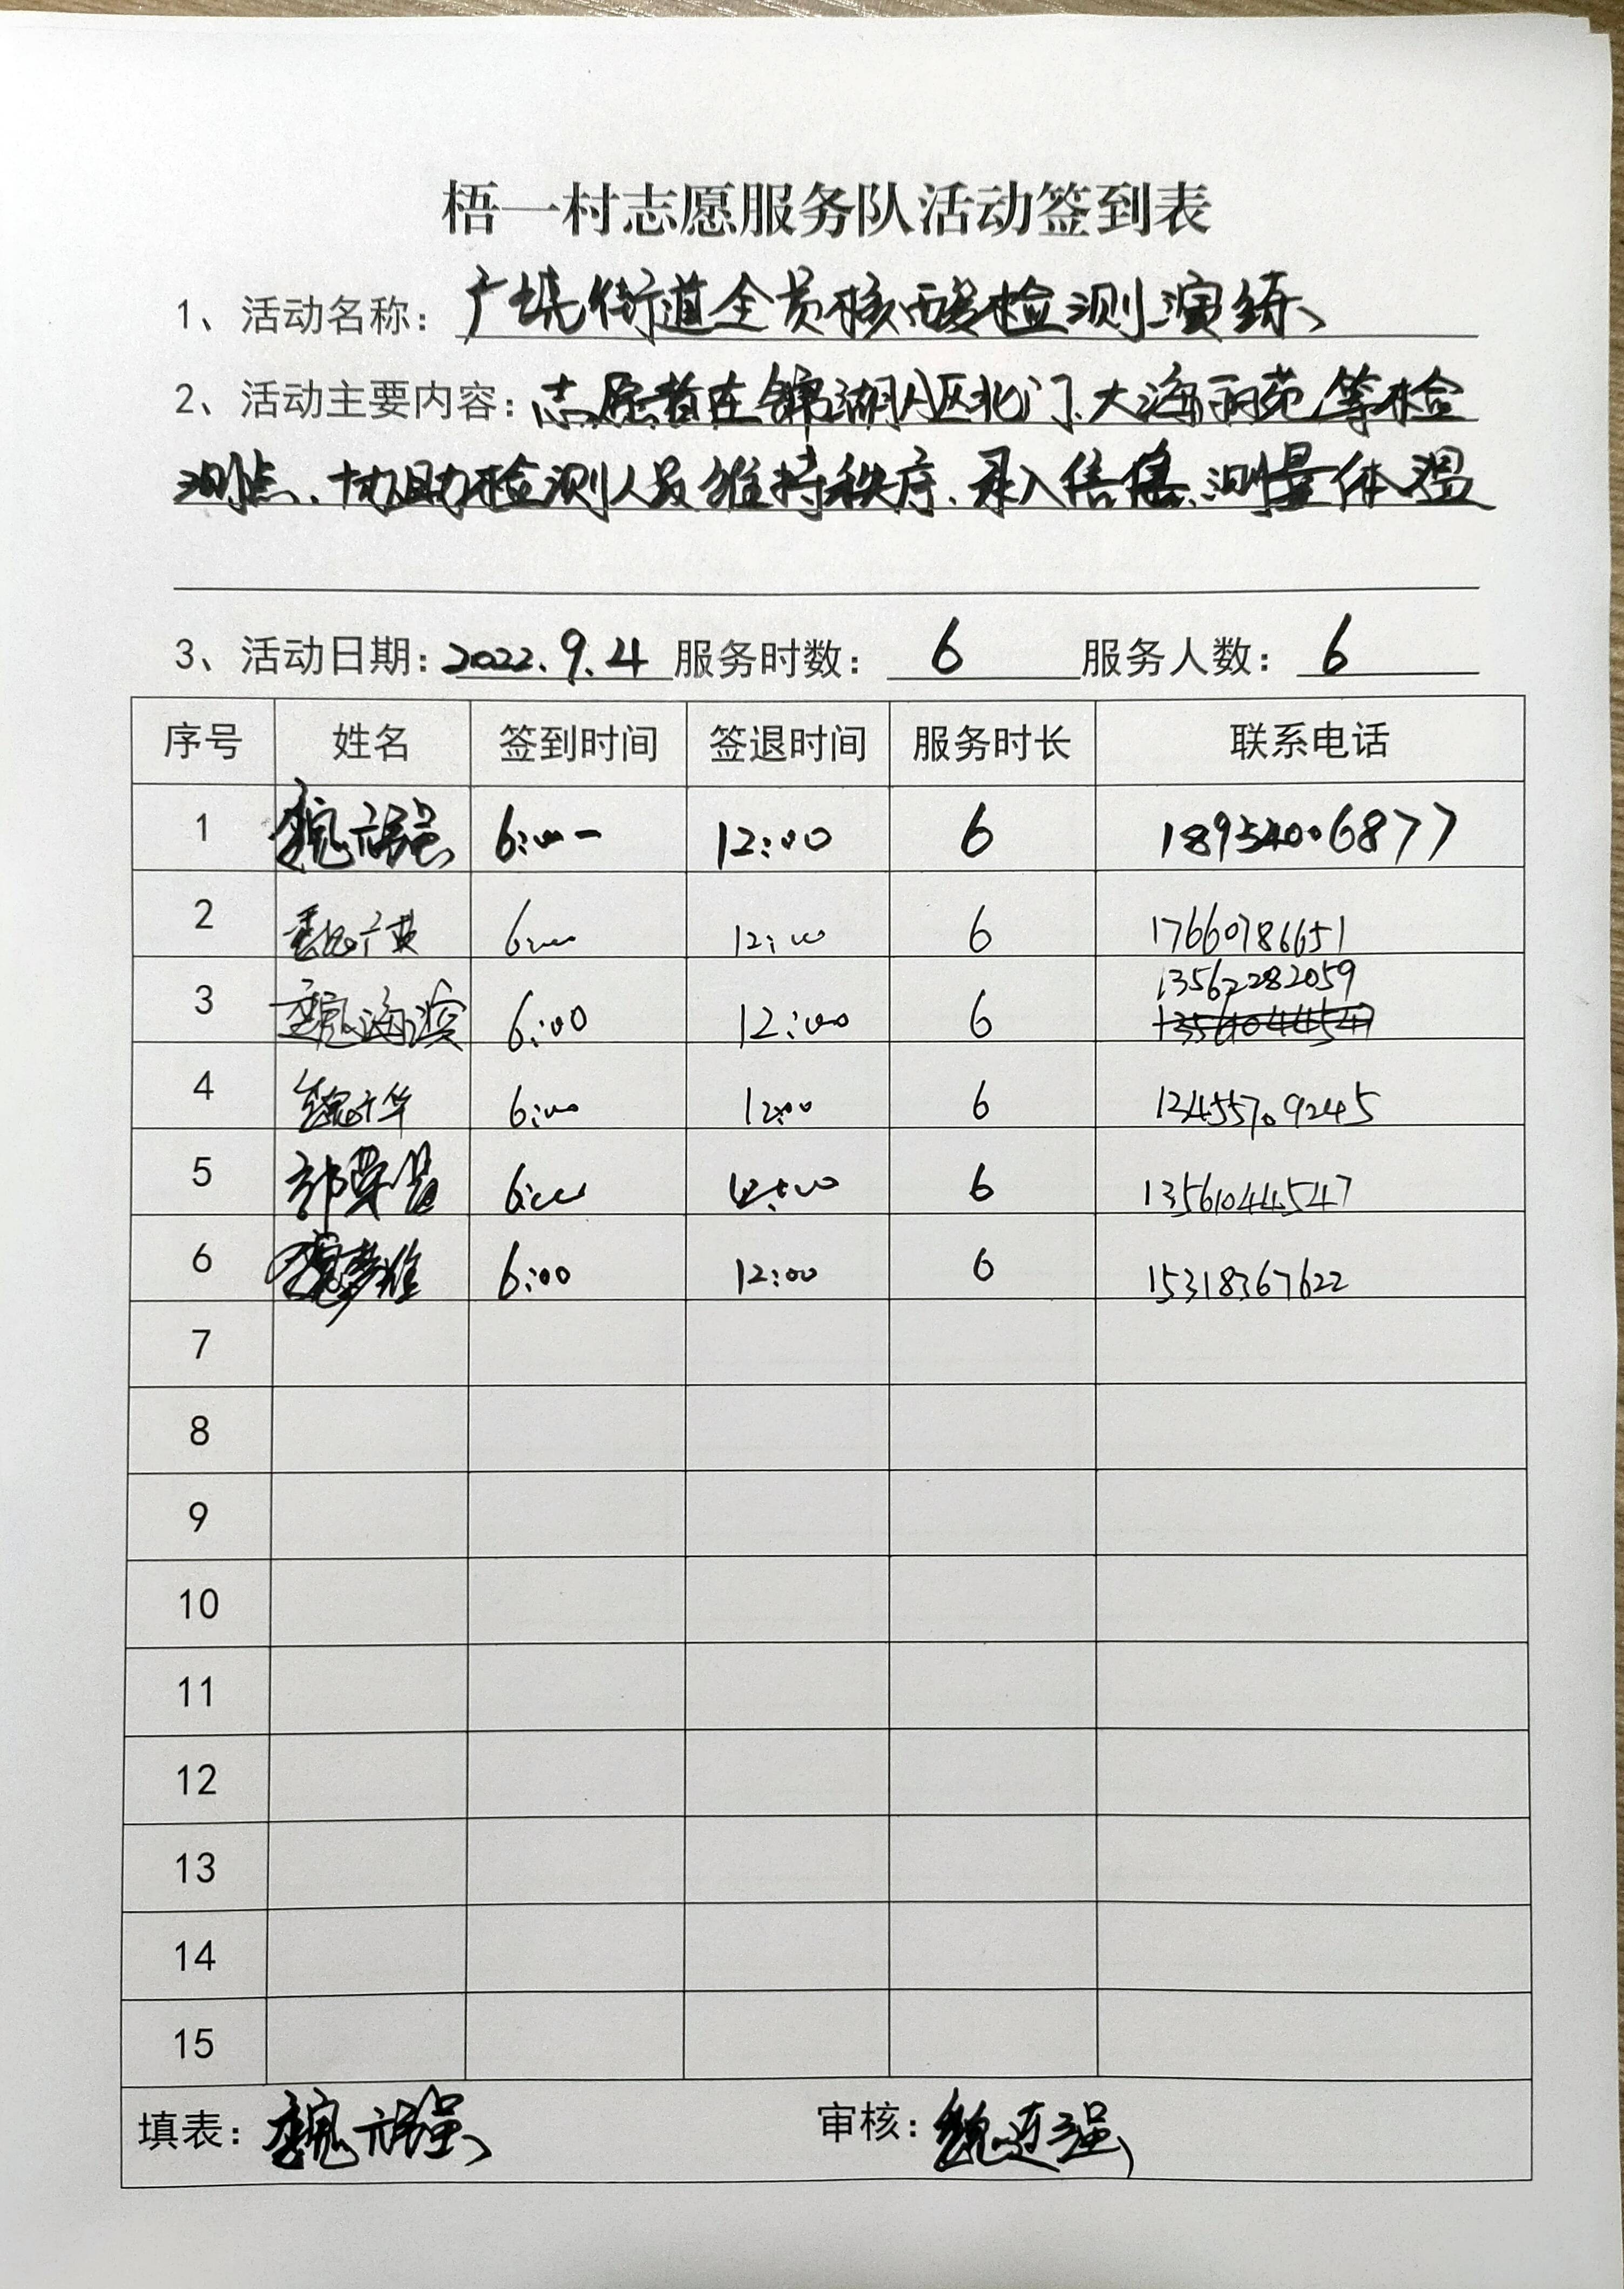 梧一村志愿服务队活动签到表
1、活动名称：广垸街道全员核酸检测演练
2、活动主要内容：志愿者在锦湖小区北门、大海丽苑等检
测点、协助检测人员维持秩序、录入信息、测量体温
3、活动日期：2022.9.4 服务时数：6 服务人数：6
序号 姓名 签到时间 签退时间 服务时长 联系电话
1 魏 强 6:00 12:00 6 18954006877
2 魏广英 6:00 12:00 6 17660786651
3 魏海滨 6:00 12:00 6 13562282059
4 魏广华 6:00 12:00 6 124557092245
5 郭 6:00 12:00 6 13561044547
6 魏 6:00 12:00 6 15318367622
7
8
9
10
11
12
13
14
15
填表：魏 强 审核：魏连强